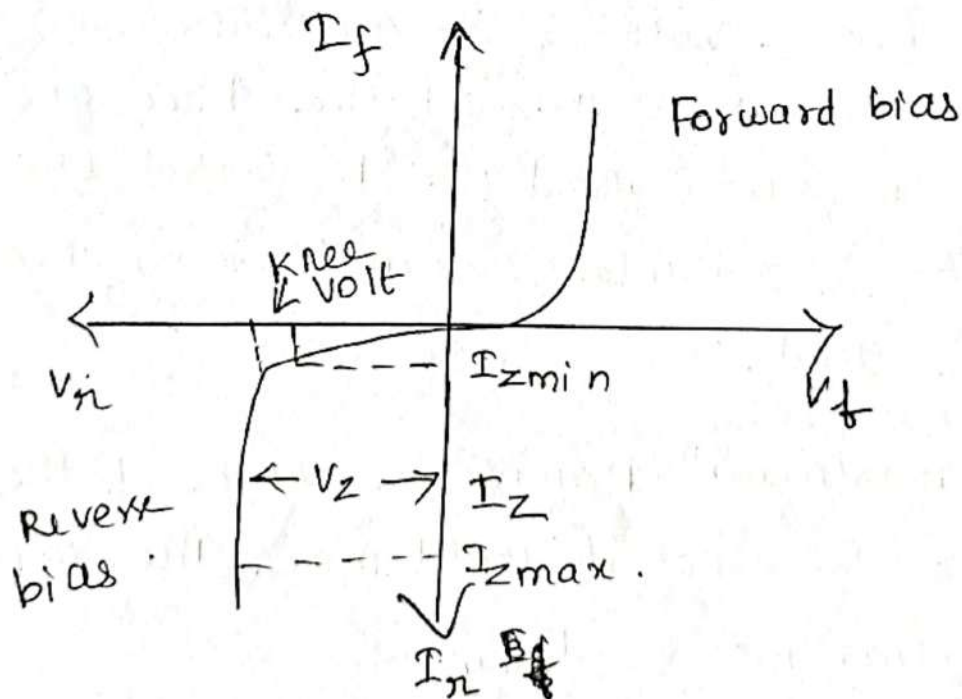 I_f
Forward bias
knee
volt
V_r
I_zmin
V_f
V_z
I_z
Reverse
bias
I_zmax.
I_r